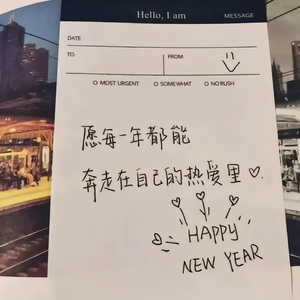 Hello, I am
MESSAGE
DATE
TO:
FROM:
O MOST URGENT O SOMEWHAT O NO RUSH
愿每一年都能
奔走在自己的热爱里
HAPPY
NEW YEAR